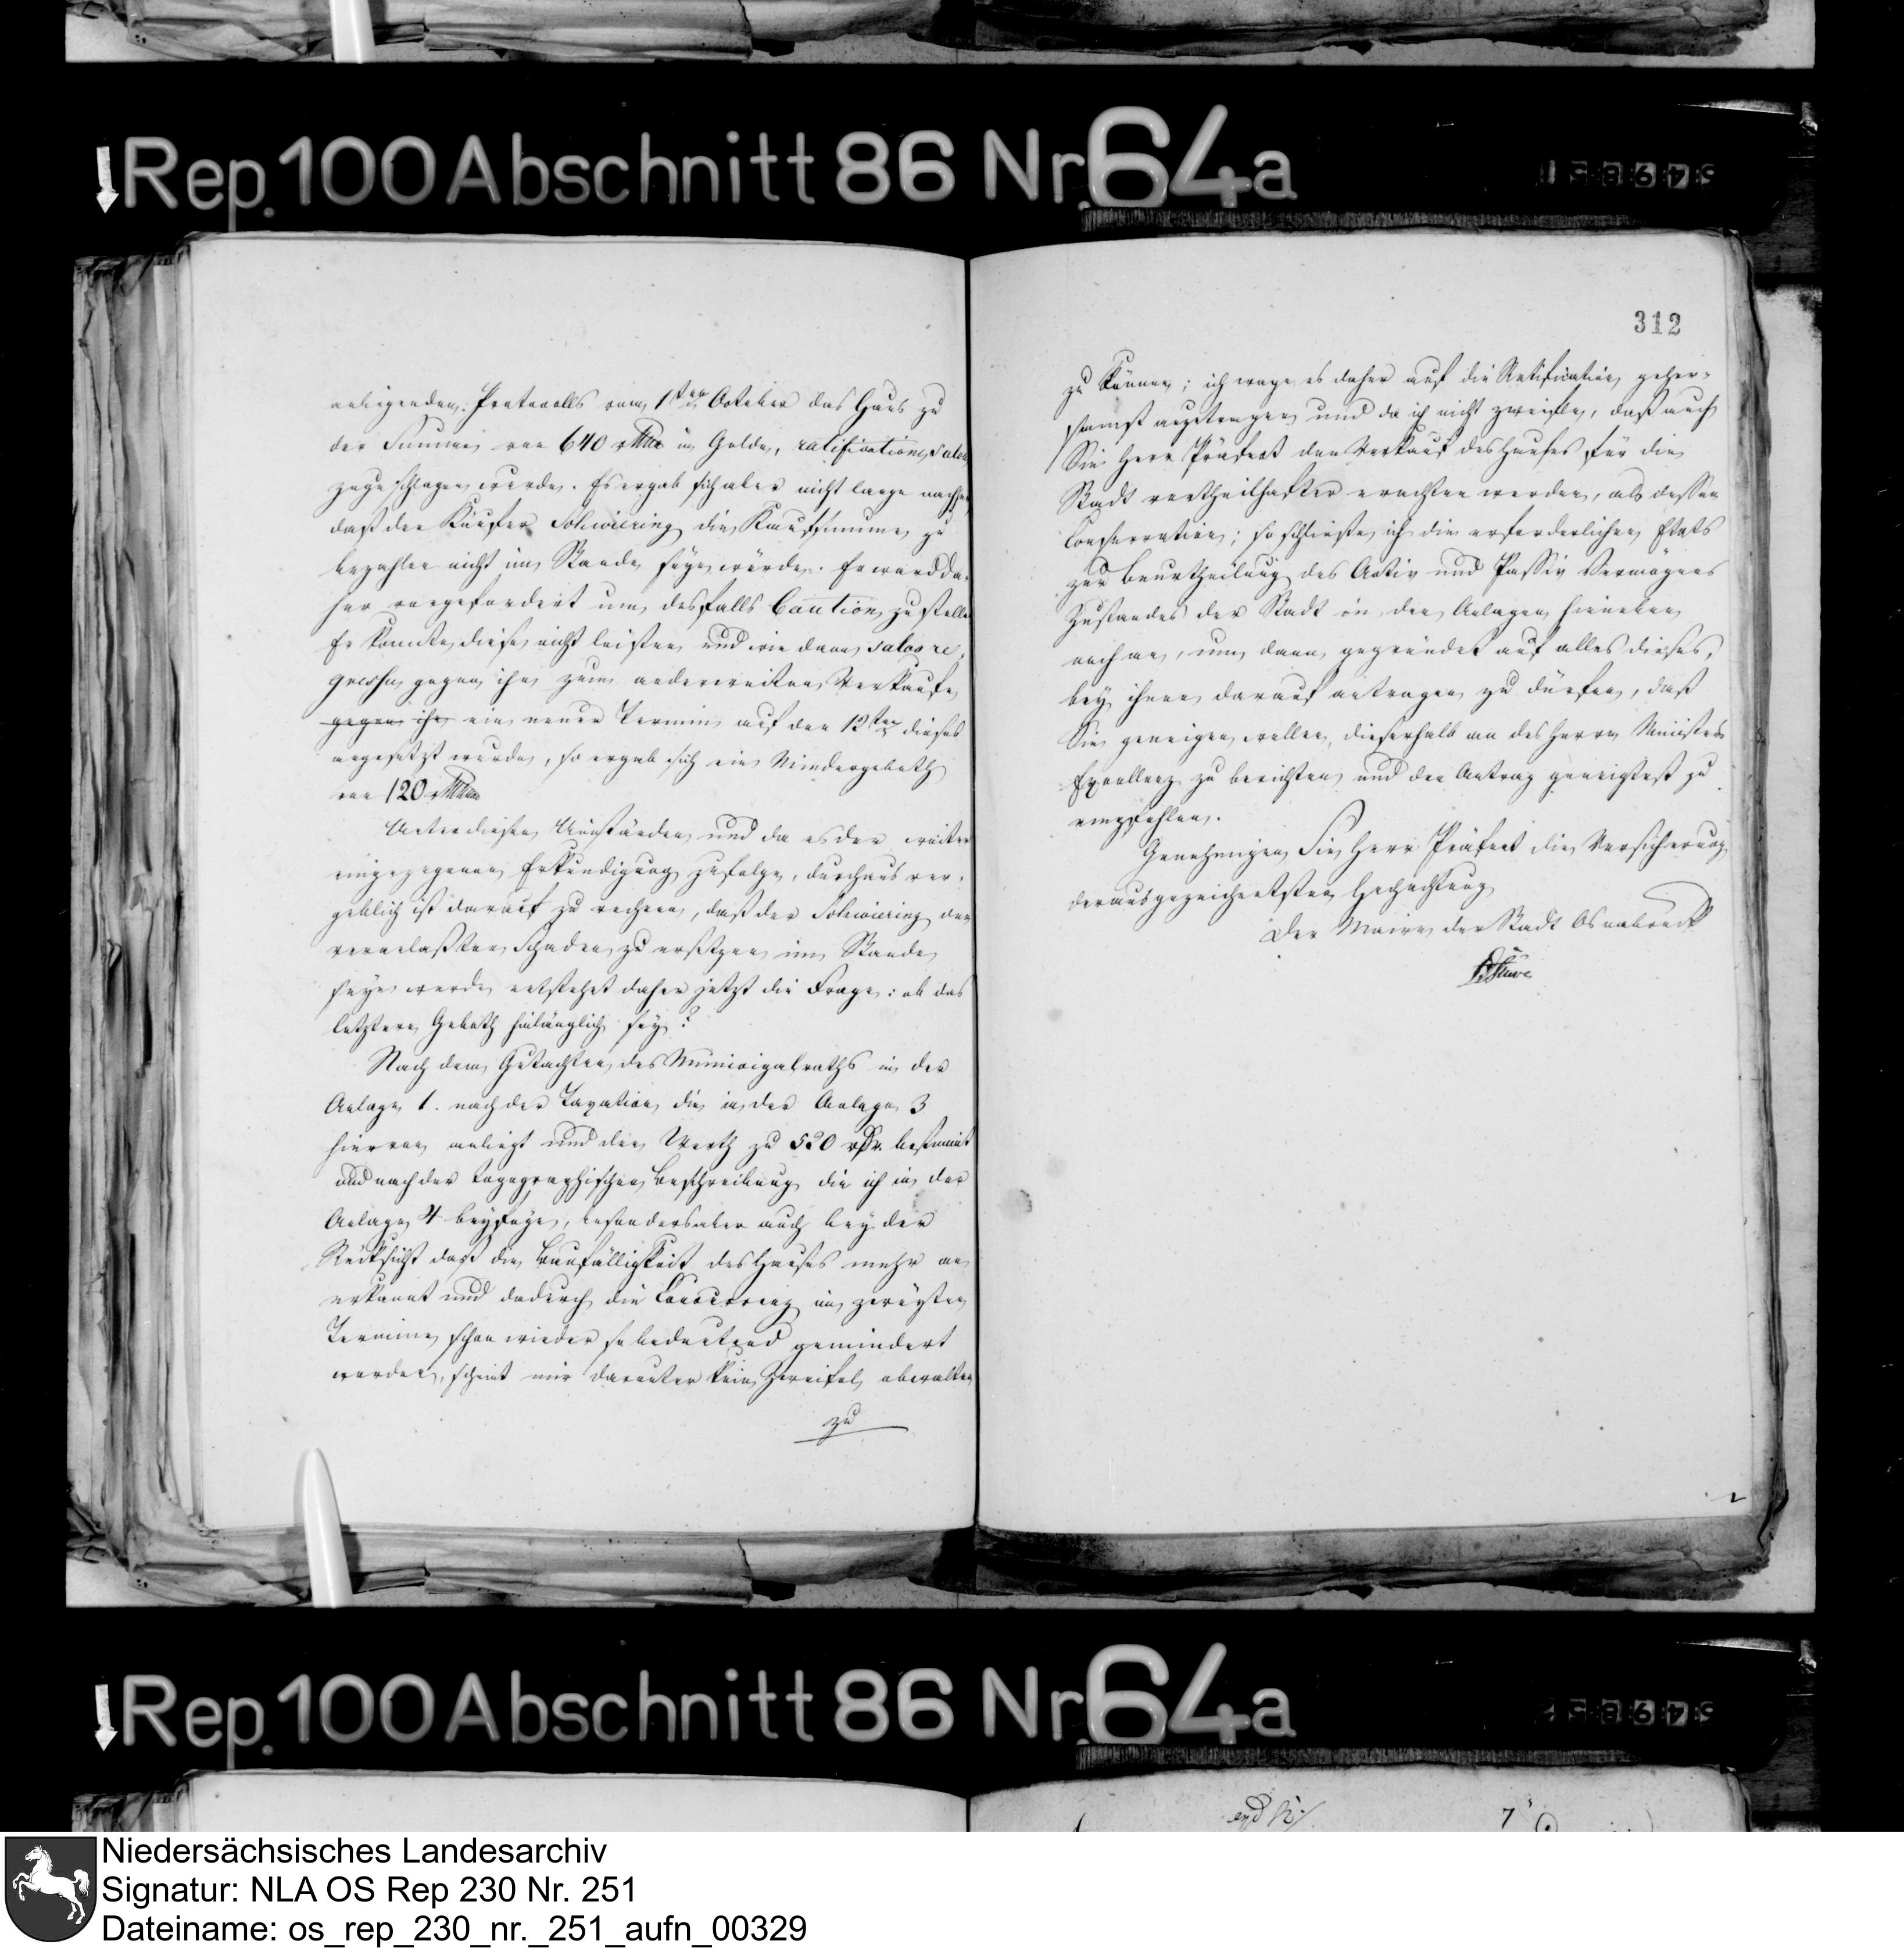 Rep. 100 Abschnitt 86 Nr. 64a
anliegenden Protocolls vom 1ten October das Haus zu
der Summe von 640 rthlr in Golde, ratificatione salva
zugeschlagen wurde. Es ergab sich aber nicht lange nachher
daß der Käufer Schwiering die Kaufsumme zu
bezahlen nicht im Stande seyn würde. Er ward da-
her vorgefordert um desfalls Caution zu stellen
Er konnte diese nicht leisten und wie dann salvo re-
gressu gegen ihn zum anderweiten Verkaufe
gegen ihn ein neuer Termin auf den 12ten dieses
angesetzt wurde, so ergab sich ein Mindergeboth
von 120 rthlr
Unter diesen Umständen und da es der weiter
eingezogenen Erkundigung zufolge, durchaus ver-
geblich ist darauf zu rechnen, daß der Schwiering den
veranlaßten Schaden zu ersetzen im Stande
seyn werde entstehet daher jetzt die Frage: ob das
letztere Geboth hinlänglich sey?
Nach dem Gutachten des Municipalraths in der
Anlage 1. nach der Taxation die in der Anlage 3
hievon anliegt und den Werth zu 520 rthr. bestimmt
und nach der topographischen Beschreibung die ich in der
Anlage 4 beyfüge, besonders aber auch bey der
Rücksicht daß die Baufälligkeit des Hauses mehr an-
erkannt und dadurch die Concurrenz im zweyten
Termine schon wieder so bedeutend gemindert
worden, scheint mir darunter kein Zweifel obwalten
zu
312
zu können; ich wage es daher auf die Ratification gehor-
samst anzutragen und da ich nicht zweifle, daß auch
Sie Herr Präfect den Verkauf des Hauses für die
Stadt vortheilhafter erachten werden, als dessen
Conservation; so schließe ich die erforderlichen Etats
zur Beurtheilung des Activ und Passiv Vermögens
Zustandes der Stadt in den Anlagen hieneben
noch an, um dann gegründet auf alles dieses,
bey ihnen darauf antragen zu dürfen, daß
Sie geneigen wollen, dieserhalb an des Herrn Ministers
Excellenz zu berichten und den Antrag geneigtest zu
empfehlen.
Genehmigen Sie Herr Präfect die Versicherung
der ausgezeichnetsten Hochachtung
Der Maire der Stadt Osnabrück
Stüve
Rep. 100 Abschnitt 86 Nr. 64a
Niedersächsisches Landesarchiv
Signatur: NLA OS Rep 230 Nr. 251
Dateiname: os_rep_230_nr._251_aufn_00329